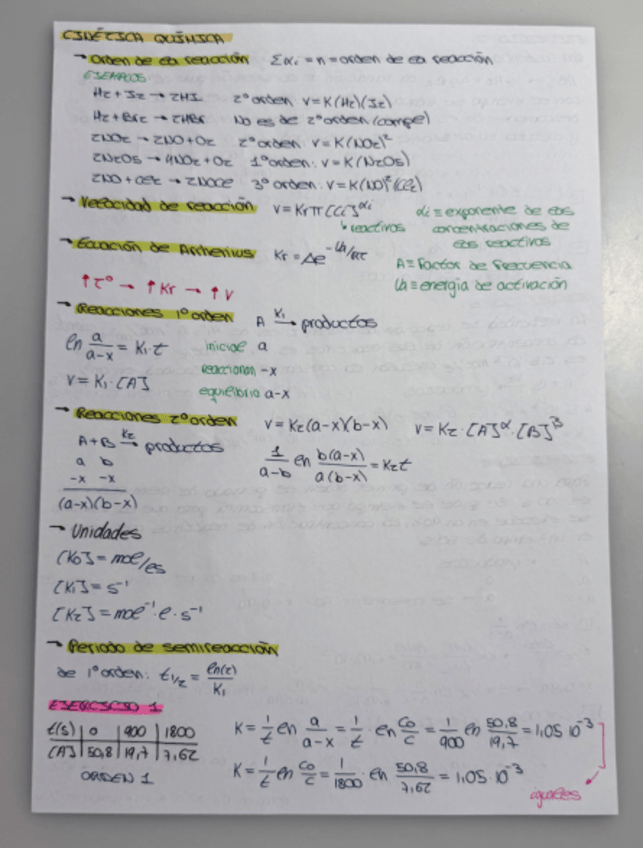 CINÉTICA QUÍMICA
→ Orden de la reacción Σαi = n = orden de la reacción
EJEMPLOS
H2 + I2 → 2HI 2º orden v = K(H2)(I2)
H2 + Br2 → 2HBr No es de 2º orden (comple)
2NO2 → 2NO + O2 2º orden: v = K(NO2)²
2N2O5 → 4NO2 + O2 1º orden: v = K(N2O5)
2NO + Cl2 → 2NOCl 3º orden: v = K(NO)²(Cl2)
→ Velocidad de reacción v = Kr π [Ci]^αi αi ≡ exponente de las
↳ reactivos concentraciones de
los reactivos
→ Ecuación de Arrhenius Kr = Ae^-Ua/RT A ≡ Factor de frecuencia
Ua ≡ energía de activación
↑Tº → ↑Kr → ↑v
→ Reacciones 1º orden A —K1→ productos
ln a/(a-x) = K1·t inicial a
reaccionan -x
v = K1·[A] equilibrio a-x
→ Reacciones 2º orden v = K2(a-x)(b-x) v = K2·[A]^α·[B]^β
A + B —K2→ productos 1/(a-b) ln b(a-x)/a(b-x) = K2t
a b
-x -x
(a-x)(b-x)
→ Unidades
[K0] = mol/ls
[K1] = s⁻¹
[K2] = mol⁻¹·l·s⁻¹
→ Periodo de semireacción
de 1º orden: t1/2 = ln(2)/K1
EJERCICIO 1
t(s) | 0 | 900 | 1800 K = 1/t ln a/(a-x) = 1/t · ln C0/C = 1/900 ln 50,8/19,7 = 1,05 10⁻³
[A] | 50,8 | 19,7 | 7,62
ORDEN 1 K = 1/t ln C0/C = 1/1800 · ln 50,8/7,62 = 1,05·10⁻³
iguales